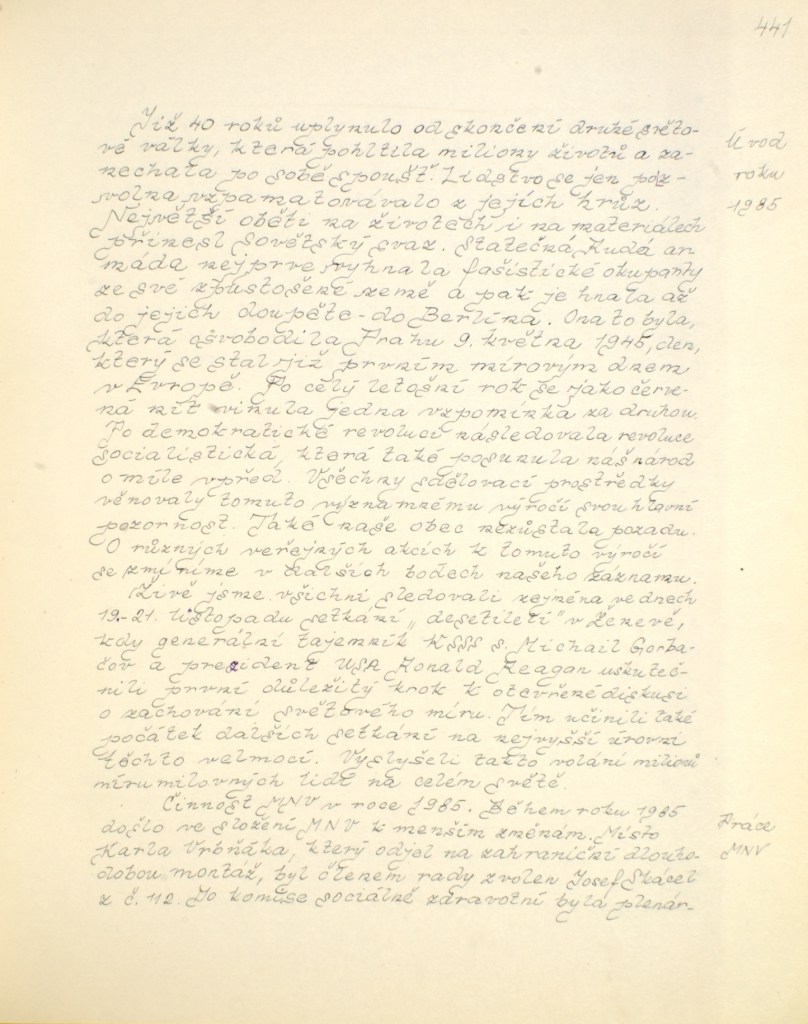 441
Již 40 roků uplynulo od skončení druhé světo-
vé války, která pohltila miliony životů a za-
nechala po sobě spoušť. Lidstvo se jen poz-
volna vzpamatovávalo z jejích hrůz.
Úvod
roku
1985
Největší oběti na životech i na materiálech
přinesl Sovětský svaz. Statečná Rudá ar
máda nejprve vyhnala fašistické okupanty
ze své zpustošené země a pak je hnala až
do jejich doupěte - do Berlína. Ona to byla,
která osvobodila Prahu 9. května 1945, den,
který se stal již prvním mírovým dnem
v Evropě. Po celý letošní rok se jako červe-
ná nit vinula jedna vzpomínka za druhou.
Po demokratické revoluci následovala revoluce
socialistická, která také posunula náš národ
o míle vpřed. Všechny sdělovací prostředky
věnovaly tomuto významnému výročí svou hlavní
pozornost. Také naše obec nezůstala pozadu.
O různých veřejných akcích k tomuto výročí
se zmíníme v dalších bodech našeho záznamu.
Živě jsme všichni sledovali zejména ve dnech
19.-21. listopadu setkání „desetiletí" v Ženevě,
kdy generální tajemník KSSS s. Michail Gorba-
čov a prezident USA Ronald Reagan uskuteč-
nili první důležitý krok k otevřené diskusi
o zachování světového míru. Tím učinili také
počátek dalších setkání na nejvyšší úrovni
těchto velmocí. Vyslyšeli takto volání milionů
mírumilovných lidí na celém světě.
Činnost MNV v roce 1985. Během roku 1985
došlo ve složení MNV k menším změnám. Místo
Karla Vrbňáka, který odjel na zahraniční dlouho-
dobou montáž, byl členem rady zvolen Josef Skácel
z č. 112. Do komise sociálně zdravotní byla plenár-
Práce
MNV